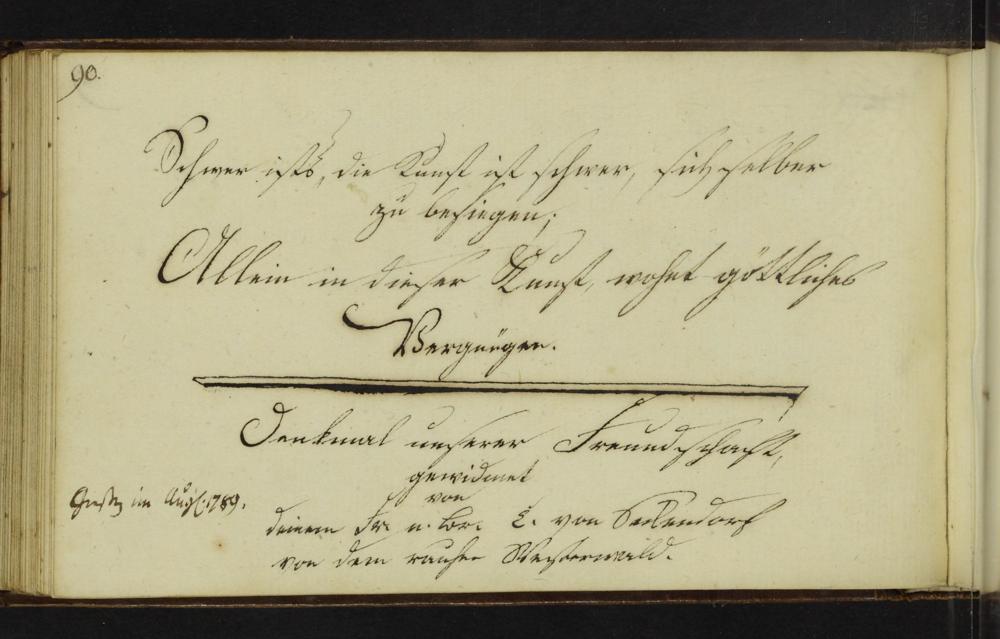 90.
Schwer ists, die Kunst ist schwer, sich selber
zu besiegen;
Allein in dieser Kunst, wohnt göttliches
Vergnügen.
Denkmal unserer Freundschaft,
gewidmet
von
im Aug: 1789.
deinem Fr. u. Br. C. von Seckendorf
von dem rauhen Westerwald.